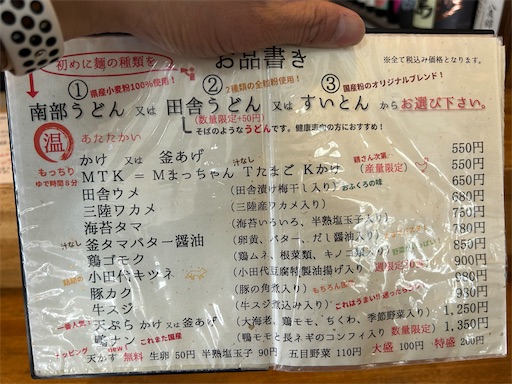 お品書き
初めに麺の種類を
※全て税込み価格となります。
県産小麦粉100%使用！
2種類の全粒粉使用！
国産粉のオリジナルブレンド！
① ② ③
南部うどん 又は 田舎うどん 又は すいとん からお選び下さい。
(数量限定+50円)
そばのようなうどんです。健康志向の方におすすめ！
温 あたたかい
もっちり
ゆで時間8分
かけ 又は 釜あげ 550円
MTK = Mまっちゃん Tたまご Kかけ (産量限定) 550円
汁なし
鶏さん次第
田舎ウメ (田舎漬け梅干し入り) おふくろの味 650円
三陸ワカメ (三陸産ワカメ入り) 680円
海苔タマ (海苔いろいろ、半熟塩玉子入り) 730円
汁なし 釜タマバター醤油 (卵黄、バター、だし醤油入り) 780円
鶏ゴモク (鶏ムネ、根菜類、キノコ類入り) 850円
小田代キツネ (小田代豆腐特製油揚げ入り) 900円
豚カク (豚の角煮入り)
牛スジ (牛スジ煮込み入り) 930円
一番人気！ 天ぷら かけ 又は 釜あげ (大海老、鶏モモ、ちくわ、季節野菜入り) 1,250円
鴨ナン これまた国産 (鴨モモと長ネギのコンフィ入り) 1,350円
トッピング new!
天かす 無料 生卵 50円 半熟塩玉子 90円 五目野菜 110円 大盛 100円 特盛 200円